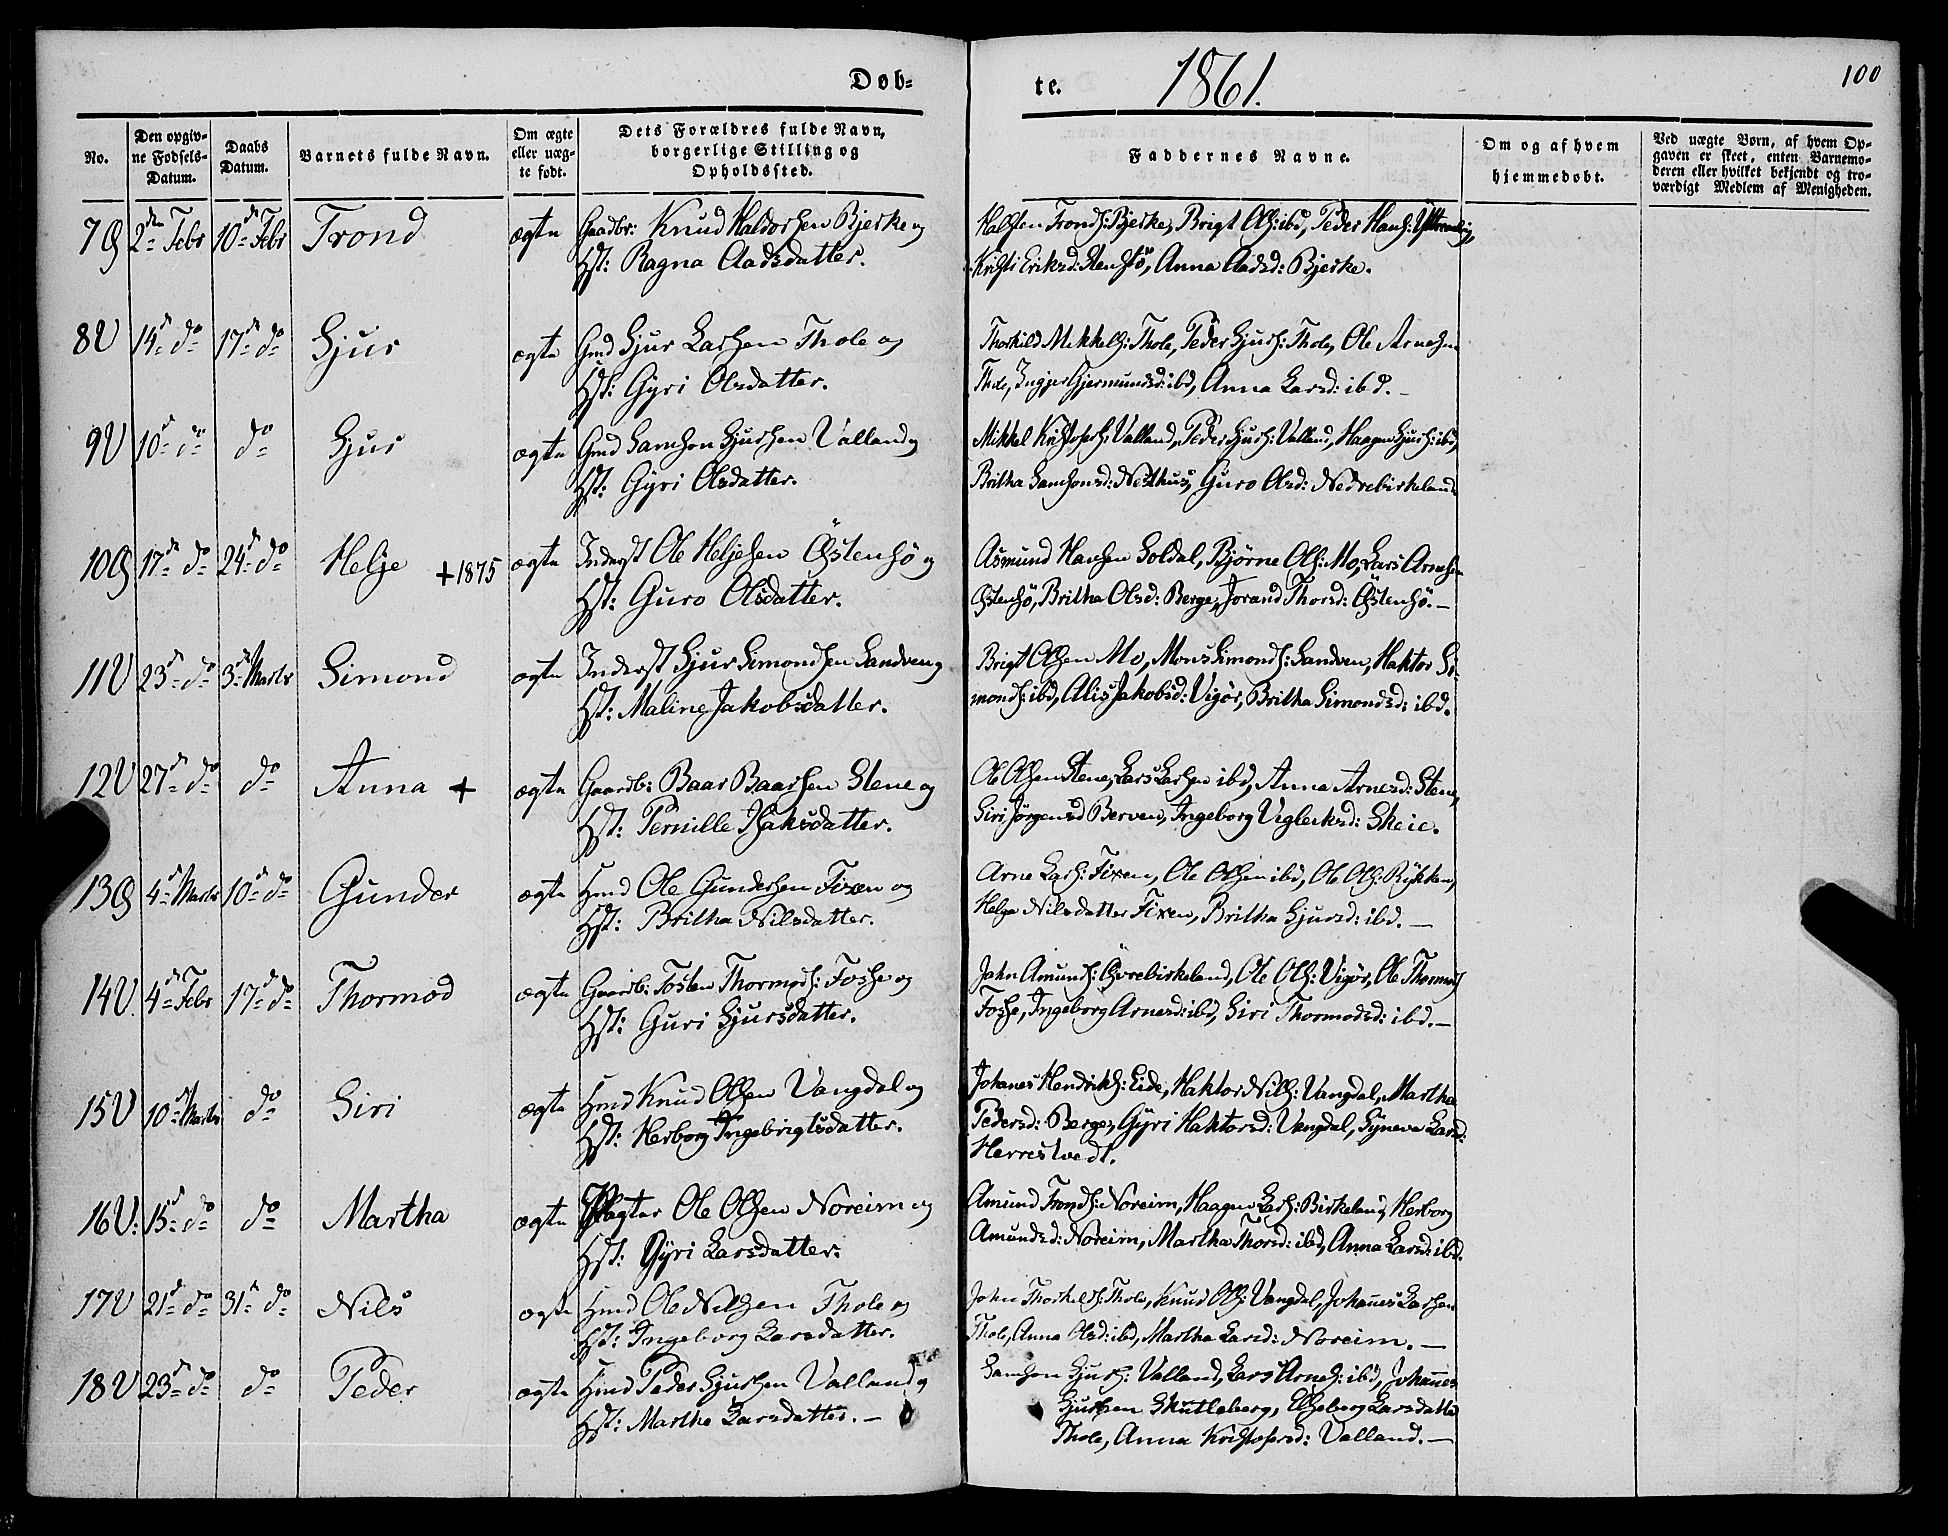 Døb=
te.
1861.
100
No.
Den opgiv=
ne Fødsels=
Datum.
Daabs
Datum.
Barnets fulde Navn.
Om ægte
eller uæg=
te født.
Dets Forældres fulde Navn,
borgerlige Stilling og
Opholdssted.
Faddernes Navne.
Om og af hvem
hjemmedøbt.
Ved uægte Børn, af hvem Op=
gaven er skeet, enten Barnemo=
deren eller hvilket bekjendt og tro=
værdigt Medlem af Menigheden.
7 2de Febr 10de Febr Trond ægte Gaadbr: Knud Haldorsen Bjerke og
Hst: Ragna Aadsdatter.
Halsten Tronds: Bjerke, Brigt Ols: ibd, Peder Hans:
Kristi Eriksd: Stensø, Anna Aadsd: Bjerke.
8V 14d do 17d do Sjur ægte Gmd Sjur Larsen Thole og
Hst: Gyri Olsdatter.
Thorkild Mikkels: Thole, Peder Sjurs: Thole, Ole Arnesen
Thole, Ingjer Gjermundsd: ibd, Anna Larsd: ibd.
9V 10d do do Sjur ægte Gmd Samson Sjursen Valland og
Hst: Gyri Olsdatter.
Mikkel Kristofers: Valland, Peder Sjurs: Valland, Haagen Sjurs: ibd,
Britha Samsonsd: Nesthus, Guro Olsd: Nedrebirkeland.
10 17de do 24d do Helje +1875 ægte Inderst Ole Heljesen Østensø og
Hst: Guro Olsdatter.
Asmund Hansen Soldal, Bjørne Ols: Mo, Lars Arnesen
Østensø, Britha Olsd: Berge, Jorand Thorsd: Østensø.—
11V 23d do 3d Marts Simond ægte Inderst Sjur Simondsen Sandven og
Hst: Maline Jakobsdatter.
Brigt Olsen Mo, Mons Simonds: Sandven, Haktor Si-
monds: ibd, Alis Jakobsd: Vigør, Britha Simondsd: ibd.
12V 27d do do Anna + ægte Gaardb: Baar Baarsen Stene og
Hst: Pernille Isaksdatter.
Ole Olsen Stene, Lars Larsen ibd, Anna Arnesd: Stene,
Siri Jørgensd Berven, Ingeborg Vigleiksd: Skeie.
13 4d Marts 10d do Gunder ægte Hmd Ole Gundersen Fixen og
Hst: Britha Nilsdatter.
Arne Lars: Fixen, Ole Olsen ibd, Ole Ols: Rykken,
Helga Nilsdatter Fixen, Britha Sjursd: ibd.—
14V. 4d Febr 17d do Thormod ægte Gaardb: Tosten Thormods: Fosse og
Hst: Guri Sjursdatter.
Jahn Amunds: Øvrebirkeland, Ole Ols: Vigør, Ole Thormods
Fosse, Ingeborg Arnesd: ibd, Siri Thormodsd: ibd.—
15V 10d Marts do Siri ægte Hmd Knud Olsen Vangdal og
Hst: Herborg Ingebrigtsdatter.
Johanes Hendriks: Eide, Haktor Nils: Vangdal, Martha
Pedersd: Berge, Gyri Haktorsd: Vangdal, Syneva Larsd:
Herrestvedt.
16V: 15d do do Martha ægte Plagter Ole Olsen Noreim og
Hst: Gyri Larsdatter.
Amund Tronds: Noreim, Haagen Lars: Birkeland, Herborg
Amundsd: Noreim, Martha Thorsd: ibd, Anna Larsd: ibd.
17V 21d do 31d do Nils ægte Hmd Ole Nilsen Thole og
Hst: Ingeborg Larsdatter.
John Thorkilds: Thole, Knud Ols: Vangdal, Johanes Larsen
Thole, Anna Olsd: ibd, Martha Larsd: Noreim.—
18V 23d do do Peder ægte Hmd Peder Sjursen Valland og
Hst: Martha Larsdatter.—
Samson Sjurs: Valland, Lars Arnes: ibd, Johanes
Sjursen Skutleberg, Elseberg Larsdatter
Thole, Anna Kristofersd: Valland.—